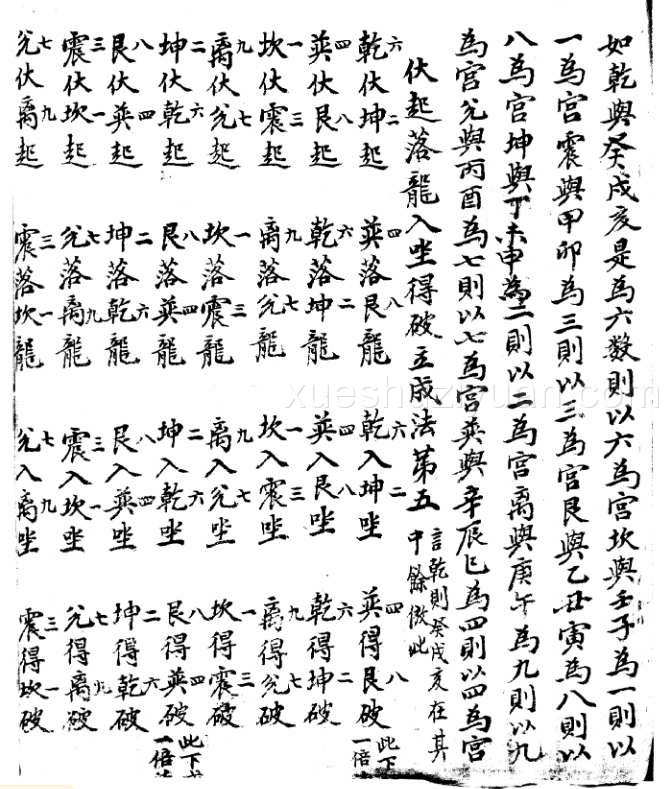 如乾與癸戌亥是為六数則以六為宮坎與壬子為一則以
一為宮震與甲卯為三則以三為宮艮與乙丑寅為八則以
八為宮坤與丁未申為二則以二為宮离與庚午為九則以九
為宮兊與丙酉為七則以七為宮巽與辛辰巳為四則以四為宮
伏起落龍入坐得破立成法第五 言乾則癸戌亥在其中餘倣此
六乾伏二坤起 四巽落八艮龍 六乾入二坤坐 四巽得八艮破 此下一倍
四巽伏八艮起 六乾落二坤龍 四巽入八艮坐 六乾得二坤破
一坎伏三震起 九离落七兊龍 一坎入三震坐 九离得七兊破
九离伏七兊起 一坎落三震龍 九离入七兊坐 一坎得三震破
二坤伏六乾起 八艮落四巽龍 二坤入六乾坐 八艮得四巽破 此下一倍
八艮伏四巽起 二坤落六乾龍 八艮入四巽坐 二坤得六乾破
三震伏一坎起 七兊落九离龍 三震入一坎坐 七兊得九离破
七兊伏九离起 三震落一坎龍 七兊入九离坐 三震得一坎破